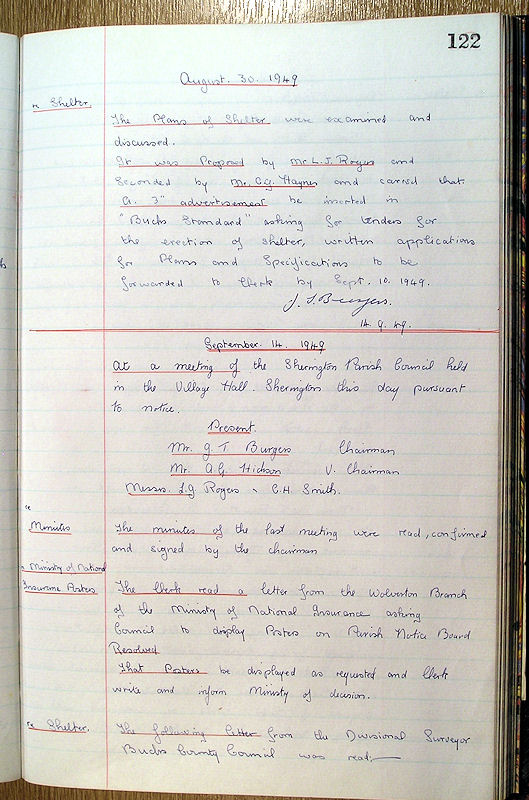 122
August. 30. 1949
re Shelter.
The Plans of Shelter were examined and
discussed.
It was Proposed by Mr L. J. Rogers and
Seconded by Mr. C.G. Haynes and carried that
a. 3" advertisement be inserted in
"Bucks Standard" asking for tenders for
the erection of shelter, written applications
for Plans and Specifications to be
forwarded to Clerk by Sept. 10. 1949.
J. T. Burgess.
14. 9. 49.
September. 14. 1949
At a meeting of the Sherington Parish Council held
in the Village Hall. Sherington this day pursuant
to notice.
Present.
Mr. J. T Burgess Chairman
Mr. A G. Hickson V. Chairman
Messrs. L.J. Rogers C.H. Smith.
re
Minutes
The minutes of the last meeting were read, confirmed
and signed by the chairman
Ministry of National
Insurance Posters
The Clerk read a letter from the Wolverton Branch
of the Ministry of National Insurance asking
Council to display Posters on Parish Notice Board
Resolved
That Posters be displayed as requested and Clerk
write and inform Ministry of decision.
re Shelter.
The following letter from the Divisional Surveyor
Bucks County Council was read:—